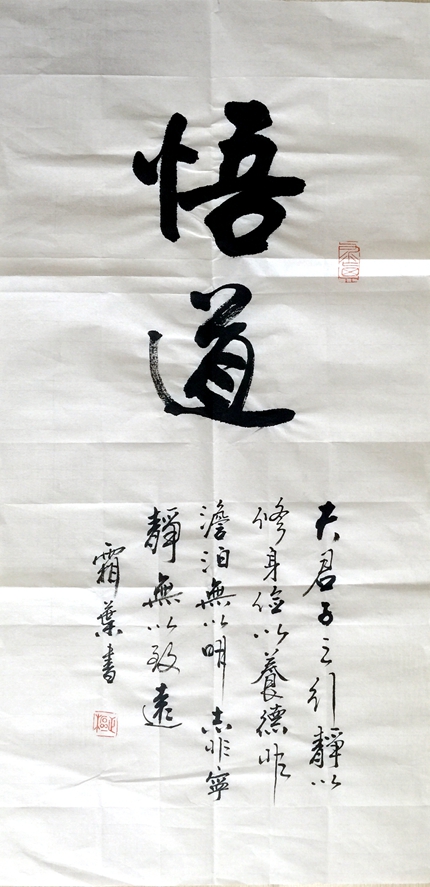 悟道
夫君子之行靜以
修身儉以養德非
澹泊無以明志非寧
靜無以致遠
霜葉書